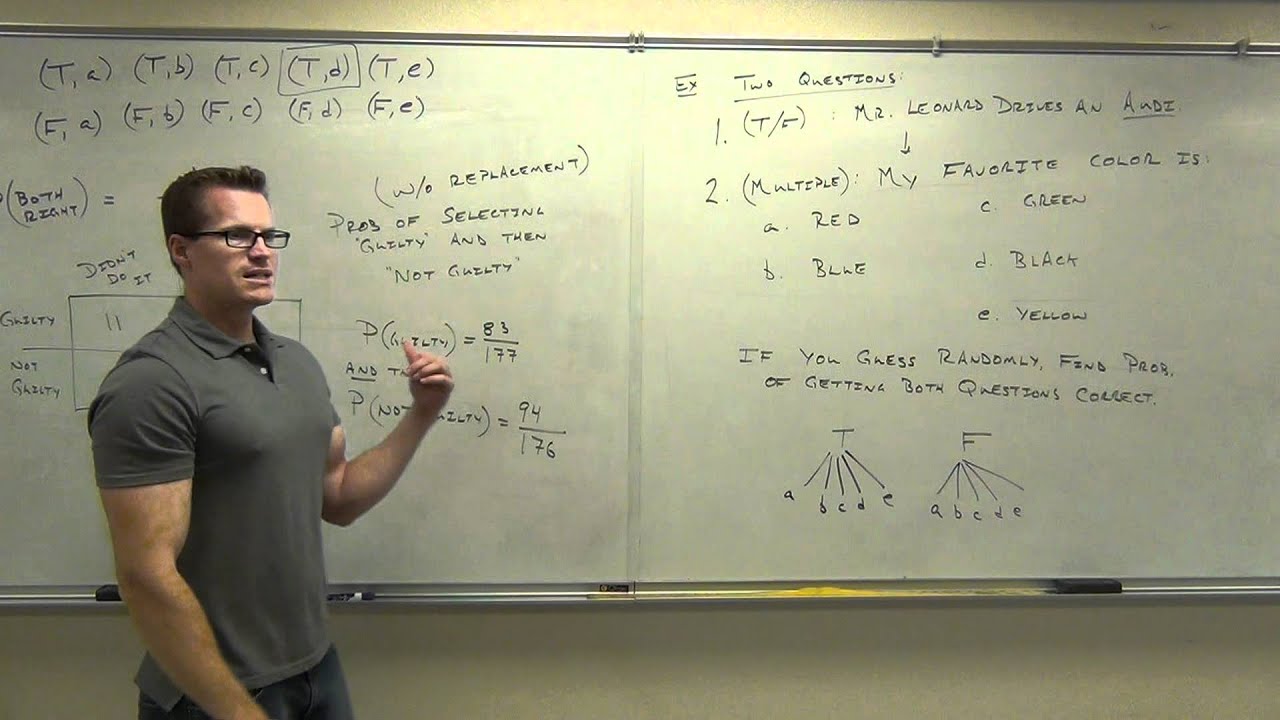 (T, a) (T, b) (T, c) (T, d) (T, e)
(F, a) (F, b) (F, c) (F, d) (F, e)
(BOTH RIGHT) =
DIDN'T
DO IT
GUILTY 11
NOT
GUILTY
(W/O REPLACEMENT)
PROB OF SELECTING
"GUILTY" AND THEN
"NOT GUILTY"
P(GUILTY) = 83/177
AND
P(NOT GUILTY) = 94/176
EX TWO QUESTIONS:
1. (T/F) : MR. LEONARD DRIVES AN AUDI.
↓
2. (MULTIPLE): MY FAVORITE COLOR IS:
a. RED
b. BLUE
c. GREEN
d. BLACK
e. YELLOW
IF YOU GUESS RANDOMLY, FIND PROB.
OF GETTING BOTH QUESTIONS CORRECT.
T F
a b c d e a b c d e